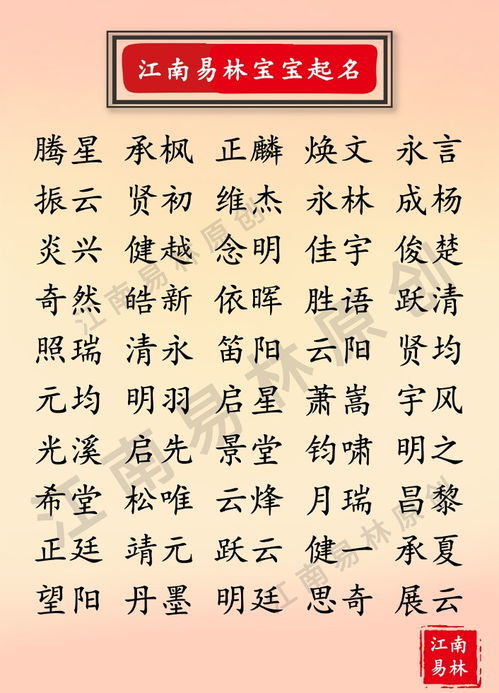 江南易林宝宝起名
腾星 承枫 正麟 焕文 永言
振云 贤初 维杰 永林 成杨
炎兴 健越 念明 佳宇 俊楚
奇然 皓新 依晖 胜语 跃清
照瑞 清永 笛阳 云阳 贤均
元均 明羽 启星 萧嵩 宇风
光溪 启先 景堂 钧啸 明之
希堂 松唯 云烽 月瑞 昌黎
正廷 靖元 跃云 健一 承夏
望阳 丹墨 明廷 思奇 展云
江南易林原创
江南易林原创
江南易林原创
江南
易林